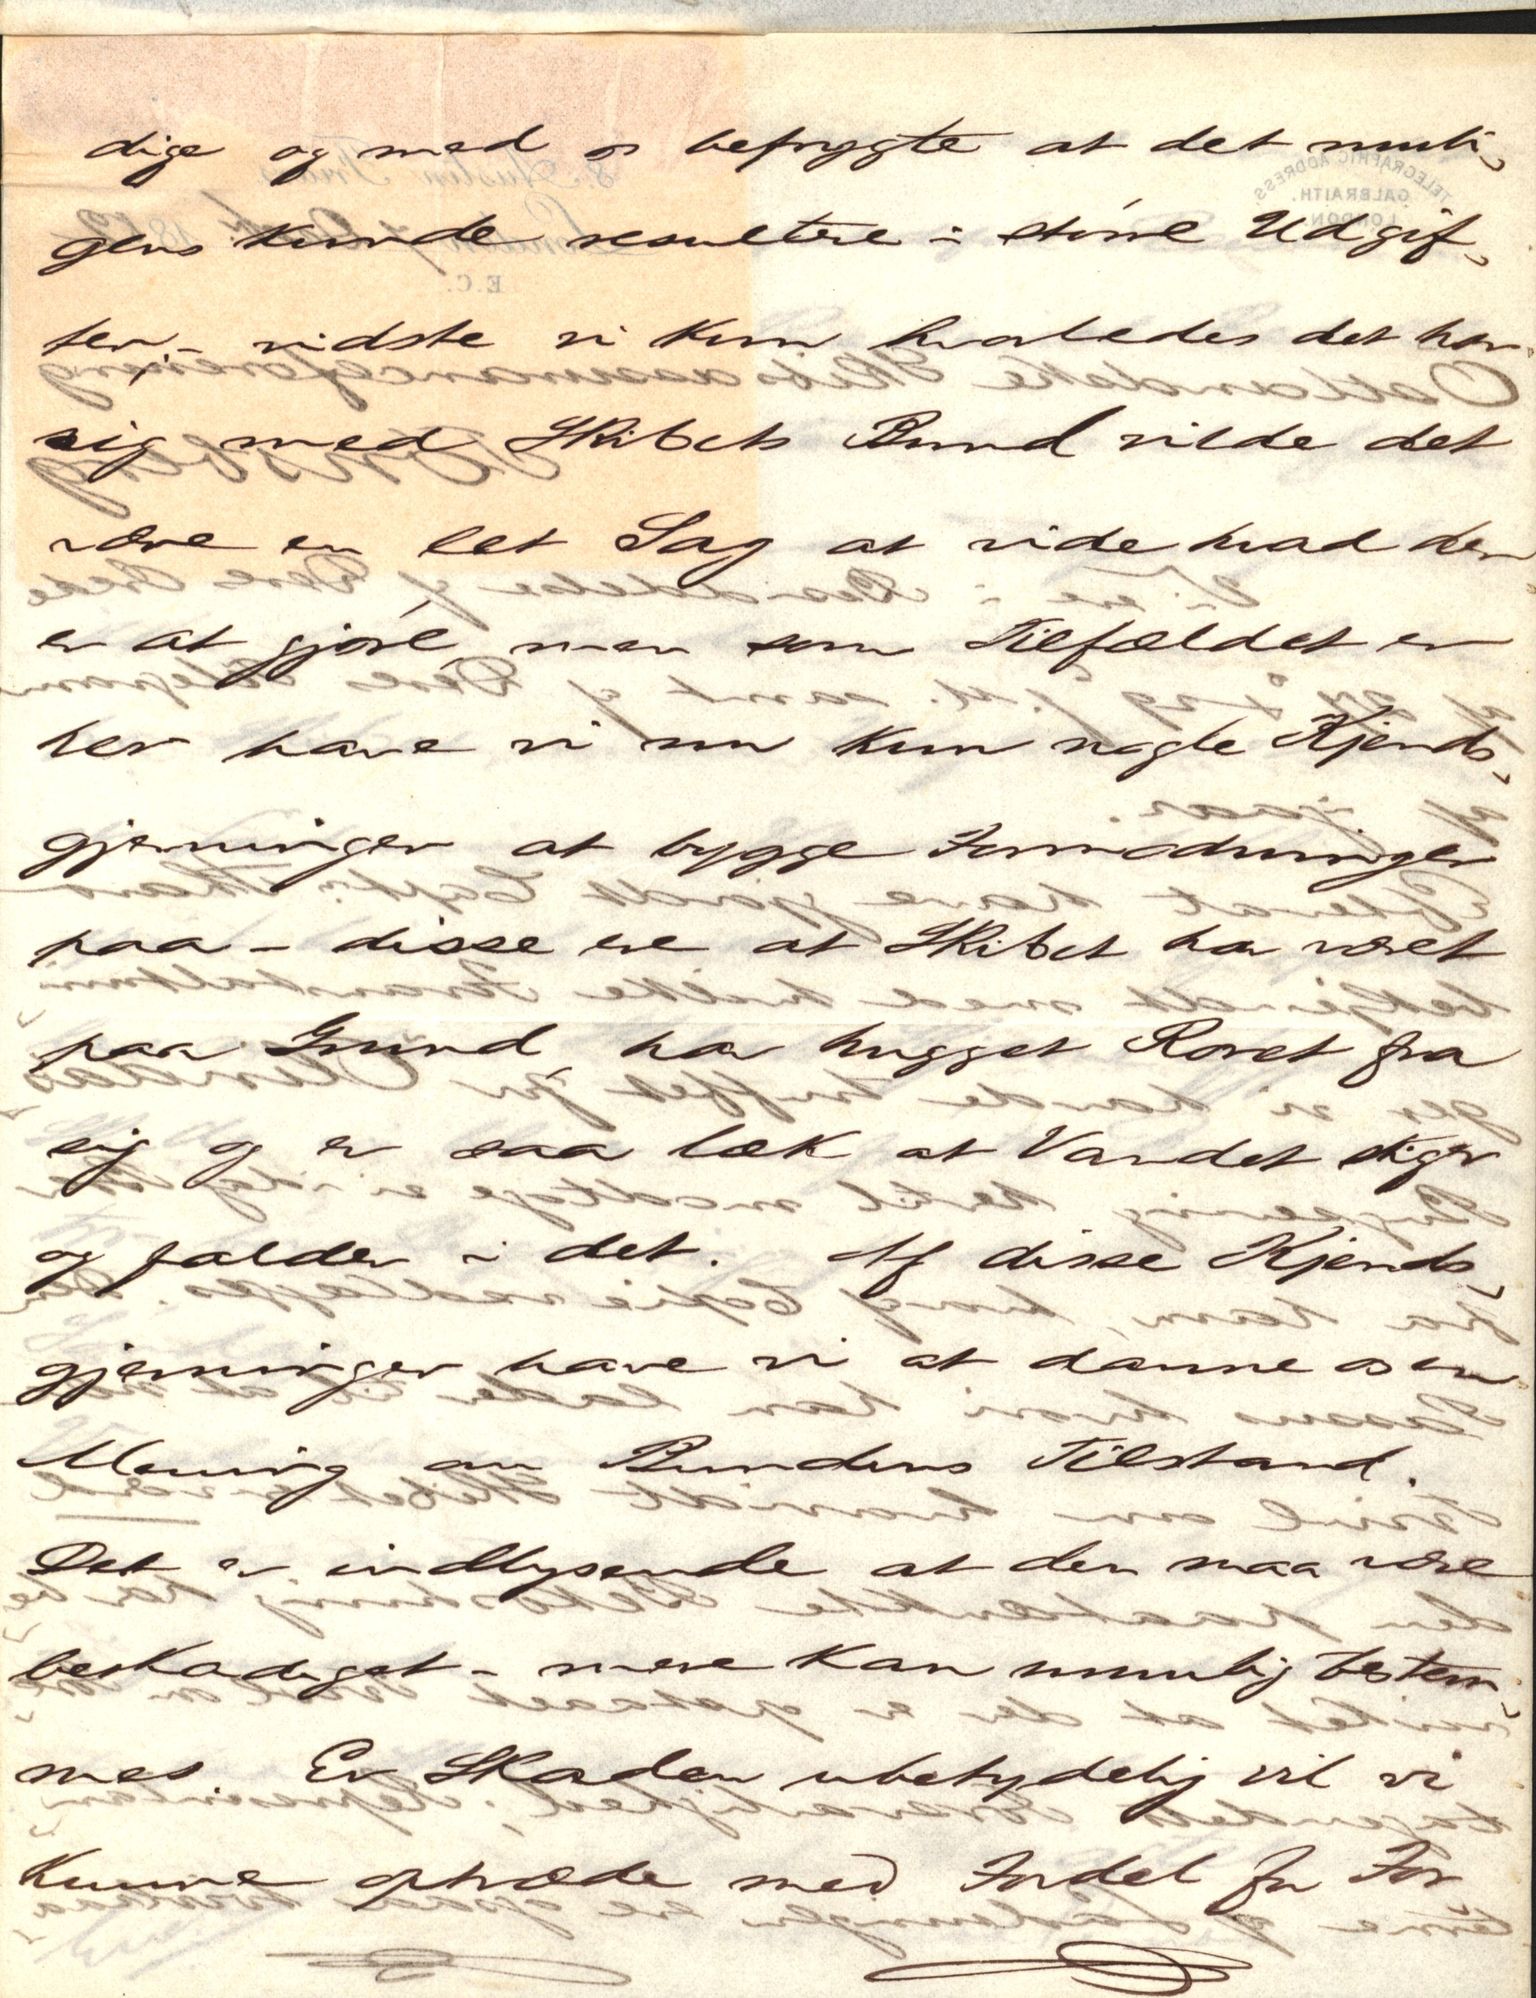 dige og med os befrygte at det muli¬
gens kunde resultere i større Udgif¬
ter – vidste vi kun hvorledes det har
sig med Skibets Bund vilde det
være en let Sag at vide hvad der
er at gjøre, men som Tilfældet er
her have vi nu kun nogle Kjends¬
gjerninger at bygge Formodninger
paa – disse ere at Skibet har været
paa Grund, har hugget Roret fra
sig og er saa læk at Vandet stiger
og falder i det. Af disse Kjends¬
gjerninger have vi at danne os en
Mening om Bundens Tilstand.
Det er indlysende at den maa være
beskadiget – mere kan umulig bestem¬
mes. Er Skaden ubetydelig vil vi
kunne optræde med Fordel for For